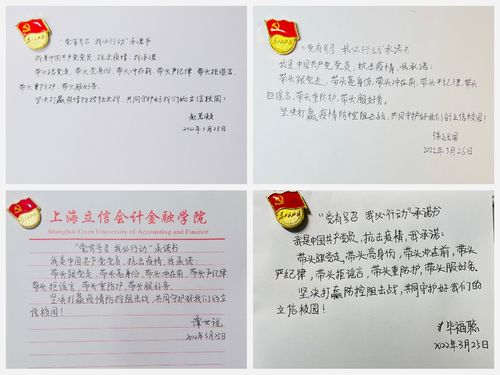 “党有号召 我必行动”承诺书
我是中国共产党员，抗击疫情，我承诺：
带头跟党走，带头亮身份，带头冲在前，带头严纪律，带头拒谣言，
带头重防护，带头服好务。
坚决打赢疫情防控阻击战，共同守护好我们的立信校园！
2022年3月25日
“党有号召 我必行动”承诺书
我是中国共产党员，抗击疫情，我承诺：
带头跟党走，带头亮身份，带头冲在前，带头严纪律，带头
拒谣言，带头重防护，带头服好务。
坚决打赢疫情防控阻击战，共同守护好我们的立信校园！
2022年3月26日
上海立信会计金融学院
Shanghai Lixin University of Accounting and Finance
“党有号召 我必行动”承诺书
我是中国共产党员，抗击疫情，我承诺：
带头跟党走，带头亮身份，带头冲在前，带头严纪律
带头拒谣言，带头重防护，带头服好务。
坚决打赢疫情防控阻击战，共同守护好我们的立
信校园！
2022年3月25日
“党有号召 我必行动”承诺书
我是中国共产党员，抗击疫情，我承诺：
带头跟党走，带头亮身份，带头冲在前，带头
严纪律，带头拒谣言，带头重防护，带头服好务。
坚决打赢防控阻击战，共同守护好我们的
立信校园！
2022年3月25日